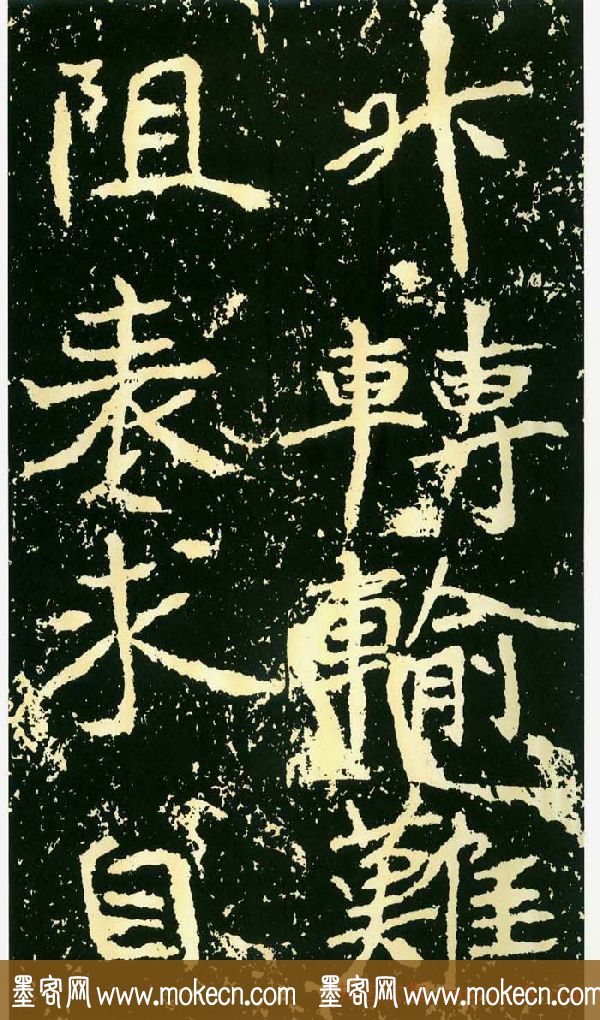 升轉輸難
阻表求自
墨客网 www.mokecn.com 墨客网 www.mokecn.com